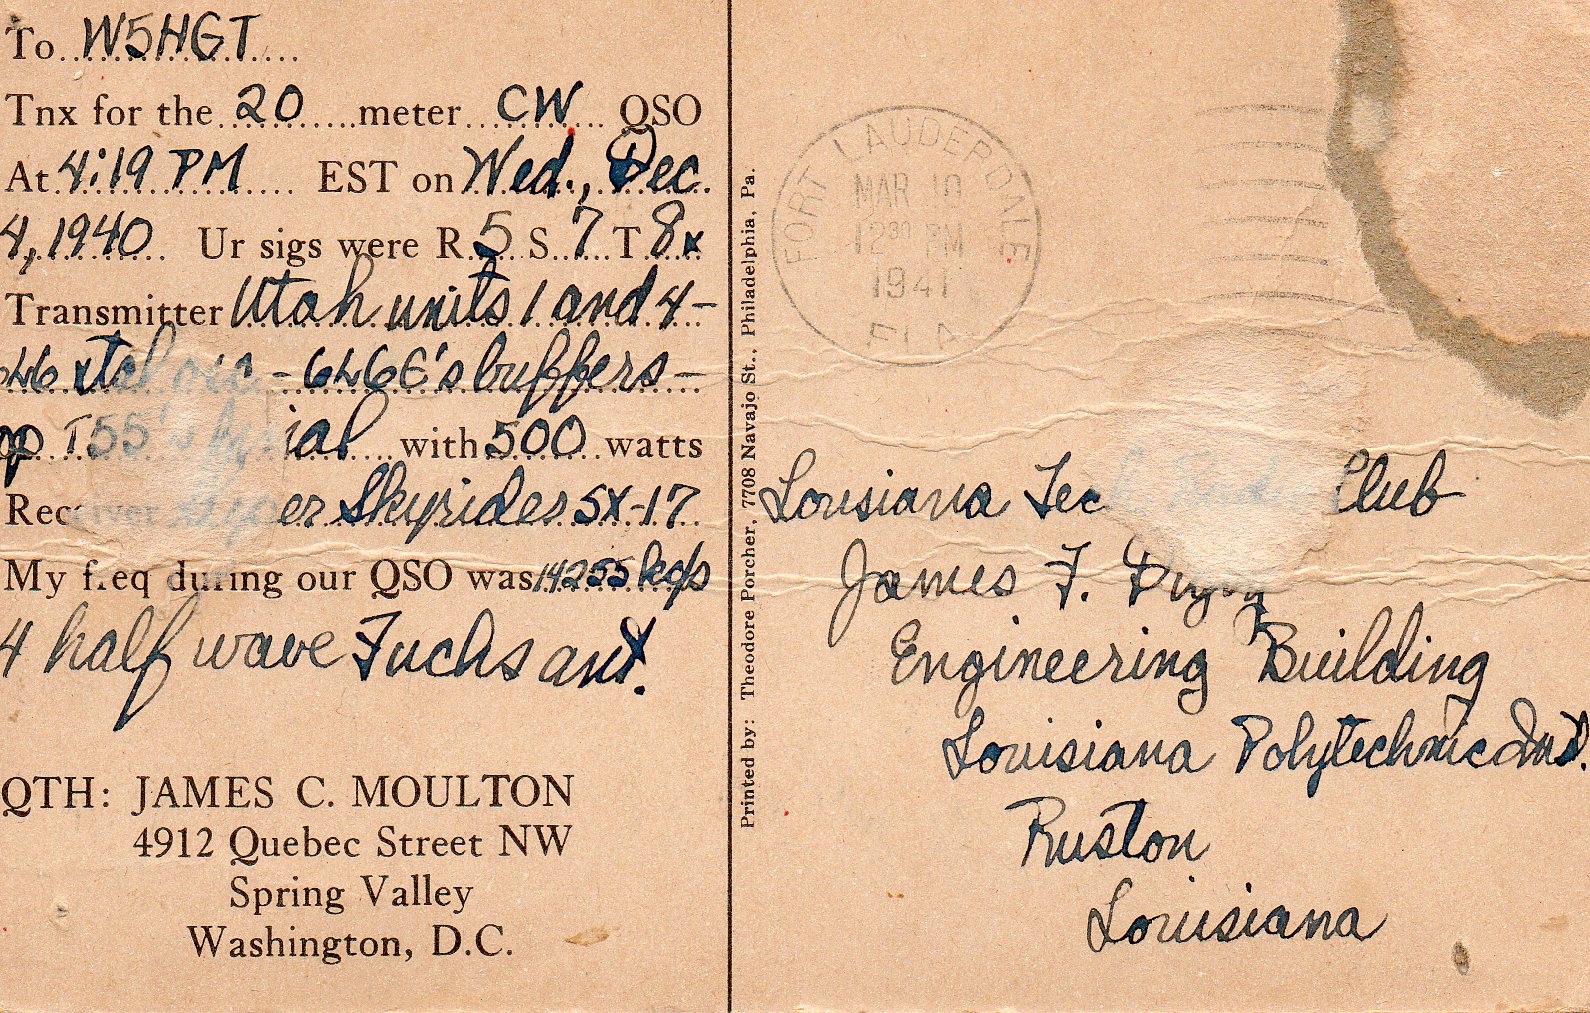 To W5HGT
Tnx for the 20 meter CW QSO
At 4:19 PM EST on Wed., Dec.
4, 1940 Ur sigs were R 5 S 7 T 8x
Transmitter Utah units 1 and 4-
6L6 xtal osc. - 6L6G's buffers -
pp T55's final with 500 watts
Receiver Super Skyrider SX-17
My freq during our QSO was 14255 kcps
4 half wave Fuchs ant.
QTH: JAMES C. MOULTON
4912 Quebec Street NW
Spring Valley
Washington, D.C.
Printed by: Theodore Porcher, 7708 Navajo St., Philadelphia, Pa.
FORT LAUDERDALE
MAR 10
12 30 PM
1941
FLA
Louisiana Tech Club
James F.
Engineering Building
Louisiana Polytechnic Inst.
Ruston
Louisiana